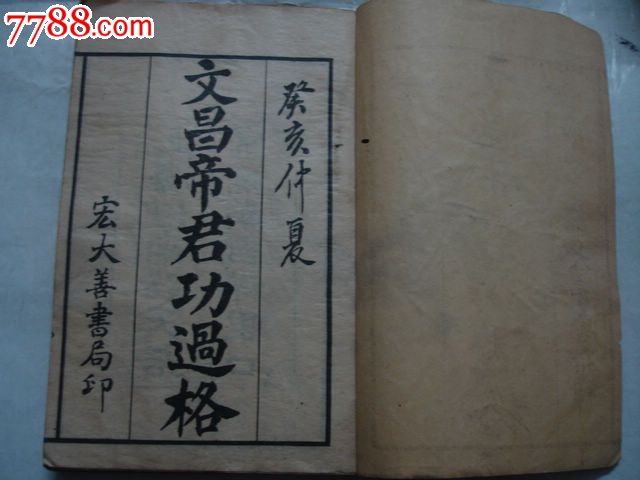 7788.com
癸亥仲夏
文昌帝君功過格
宏大善書局印